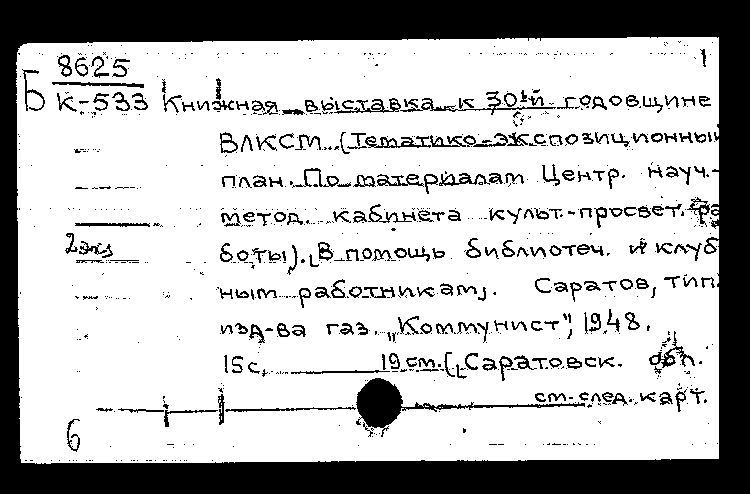 1
Б 8625
К-533 Книжная выставка к 30-й годовщине
ВЛКСМ. (Тематико-экспозиционный
план. По материалам Центр. науч.-
метод. кабинета культ.-просвет. ра
2 экз боты). [В помощь библиотеч. и клуб
ным работникам]. Саратов, тип.
изд-ва газ. „Коммунист", 1948.
15 с. 19 см. ([Саратовск. обл.
см. след. карт.
6